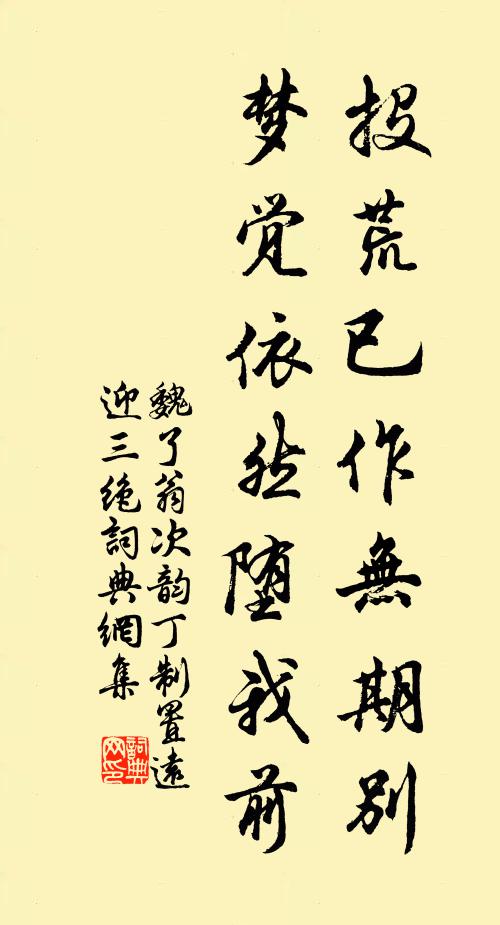 投荒已作無期别
梦覺依然堕我前
魏了翁次韵丁制置遠
迎三绝詞典網集
詞典網印